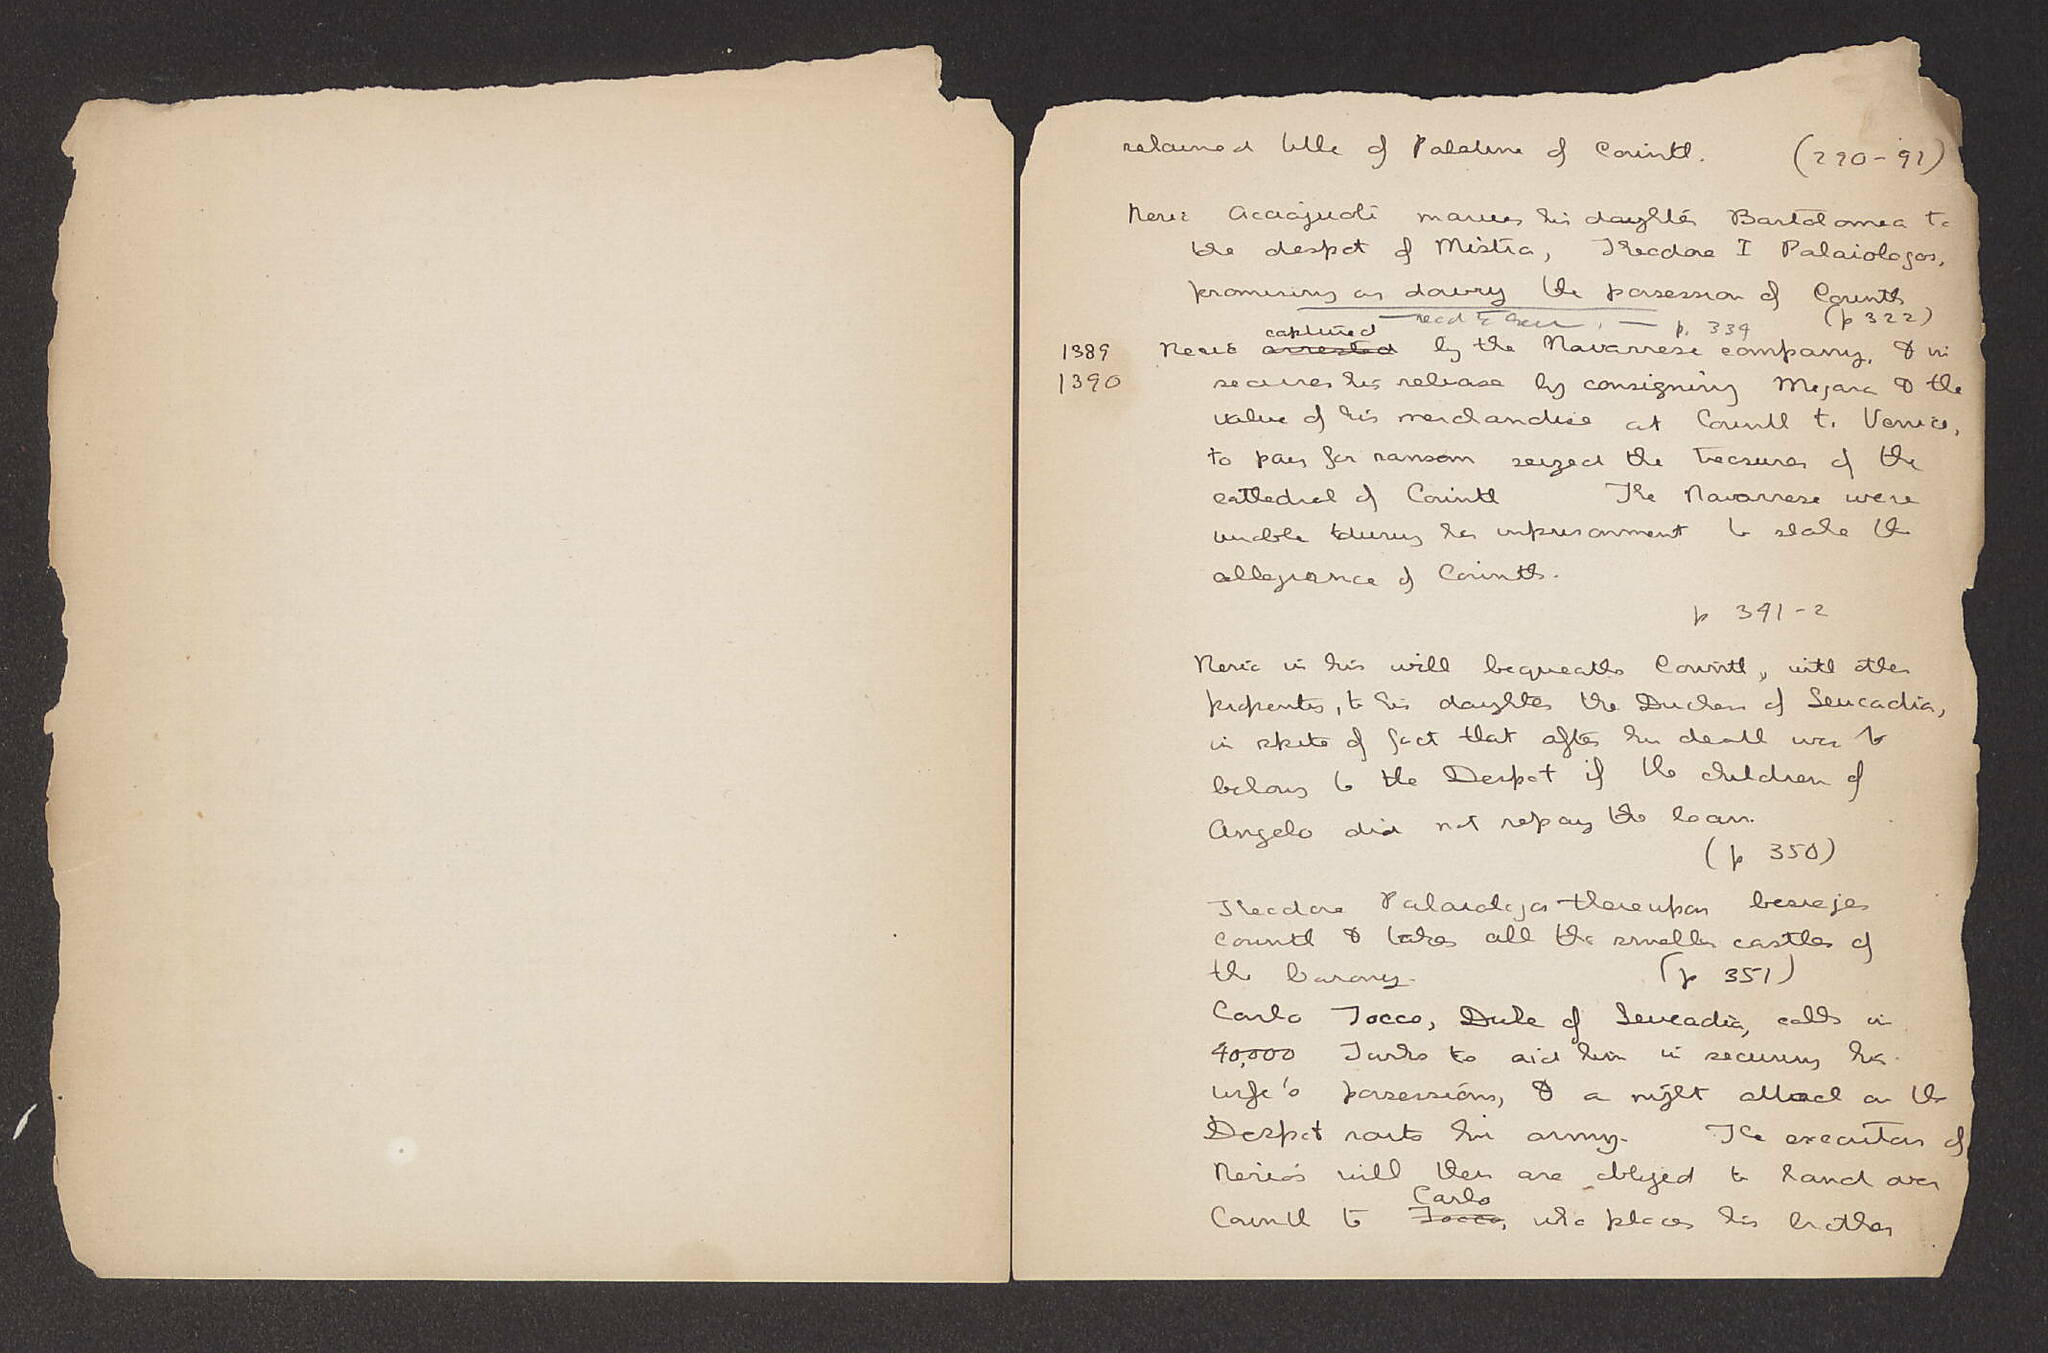 retained title of Palatine of Corinth. (290-91)
Nerio Acciajuoli marries his daughter Bartolomea to
the despot of Mistra, Theodore I Palaiologos,
promising as dowry the possession of Corinth
(p 322)
p. 339
captured
1389 Nerio arrested by the Navarrese company, & in
1390 secures his release by consigning Megara & the
value of his merchandise at Corinth to Venice,
to pay for ransom seized the treasures of the
cathedral of Corinth The Navarrese were
unable during his imprisonment to shake the
allegiance of Corinth.
p 341-2
Nerio in his will bequeaths Corinth, with other
properties, to his daughter the Duchess of Leucadia,
in spite of fact that after his death was to
belong to the Despot if the children of
Angelo did not repay the loan.
(p 350)
Theodore Palaiologos thereupon besieges
Corinth & takes all the smaller castles of
the barony. (p 351)
Carlo Tocco, Duke of Leucadia, calls in
40,000 Turks to aid him in securing his
wife's possessions, & a night attack on the
Despot routs his army. The executors of
Nerio's will then are obliged to hand over
Carlo
Corinth to Tocco, who places his brother